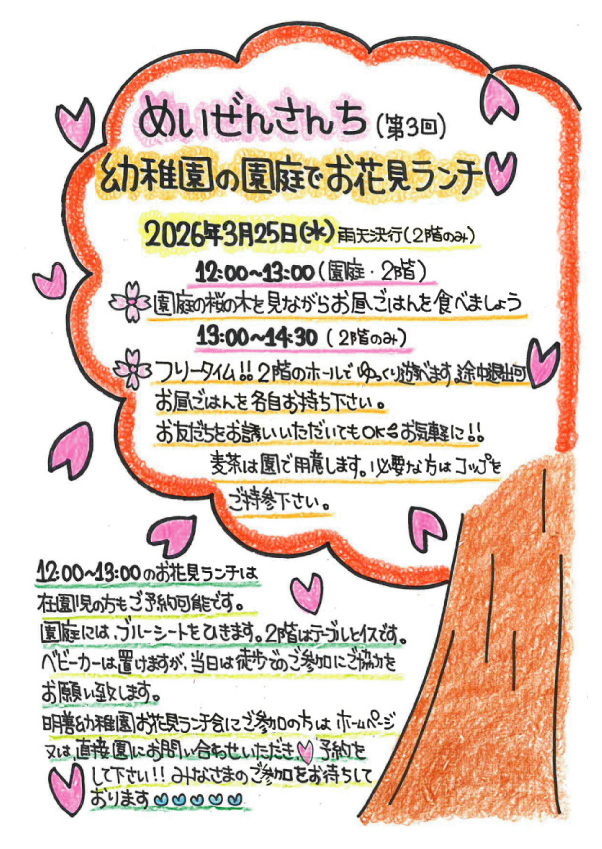 めいぜんさんち(第3回)
幼稚園の園庭でお花見ランチ
2026年3月25日(水)雨天決行(2階のみ)
12:00~13:00(園庭・2階)
園庭の桜の木を見ながらお昼ごはんを食べましょう
13:00~14:30(2階のみ)
フリータイム!!2階のホールでゆっくり遊べます。途中退出可
お昼ごはんを各自お持ち下さい。
お友だちをお誘いいただいてもOK お気軽に!!
麦茶は園で用意します。必要な方はコップを
ご持参下さい。
12:00~13:00のお花見ランチは
在園児の方もご予約可能です。
園庭には、ブルーシートをひきます。2階はテーブルとイスです。
ベビーカーは置けますが、当日は徒歩でのご参加にご協力を
お願い致します。
明善幼稚園お花見ランチ会にご参加の方は ホームページ
又は、直接園にお問い合わせいただき、予約を
して下さい!! みなさまのご参加をお待ちして
おります